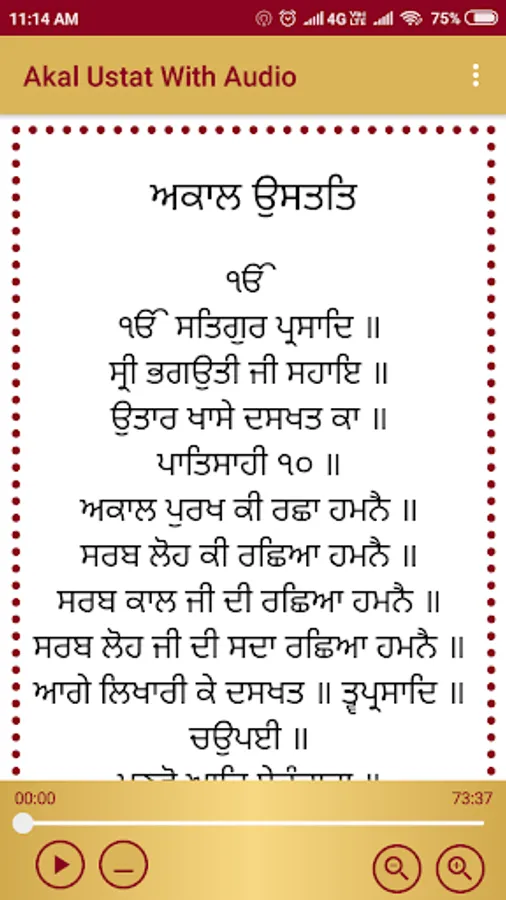 11:14 AM 4G VoLTE 75%
Akal Ustat With Audio
ਅਕਾਲ ਉਸਤਤਿ
ੴ
ੴ ਸਤਿਗੁਰ ਪ੍ਰਸਾਦਿ ॥
ਸ੍ਰੀ ਭਗਉਤੀ ਜੀ ਸਹਾਇ ॥
ਉਤਾਰ ਖਾਸੇ ਦਸਖਤ ਕਾ ॥
ਪਾਤਿਸਾਹੀ ੧੦ ॥
ਅਕਾਲ ਪੁਰਖ ਕੀ ਰਛਾ ਹਮਨੈ ॥
ਸਰਬ ਲੋਹ ਕੀ ਰਛਿਆ ਹਮਨੈ ॥
ਸਰਬ ਕਾਲ ਜੀ ਦੀ ਰਛਿਆ ਹਮਨੈ ॥
ਸਰਬ ਲੋਹ ਜੀ ਦੀ ਸਦਾ ਰਛਿਆ ਹਮਨੈ ॥
ਆਗੇ ਲਿਖਾਰੀ ਕੇ ਦਸਖਤ ॥ ਤ੍ਵਪ੍ਰਸਾਦਿ ॥
ਚਉਪਈ ॥
00:00 73:37